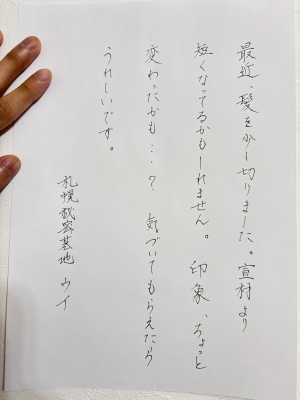 最近、髪を少し切りました。宣材より
短くなってるかもしれません。印象、ちょっと
変わったかも...? 気づいてもらえたら
うれしいです。
札幌秘密基地 ウイ